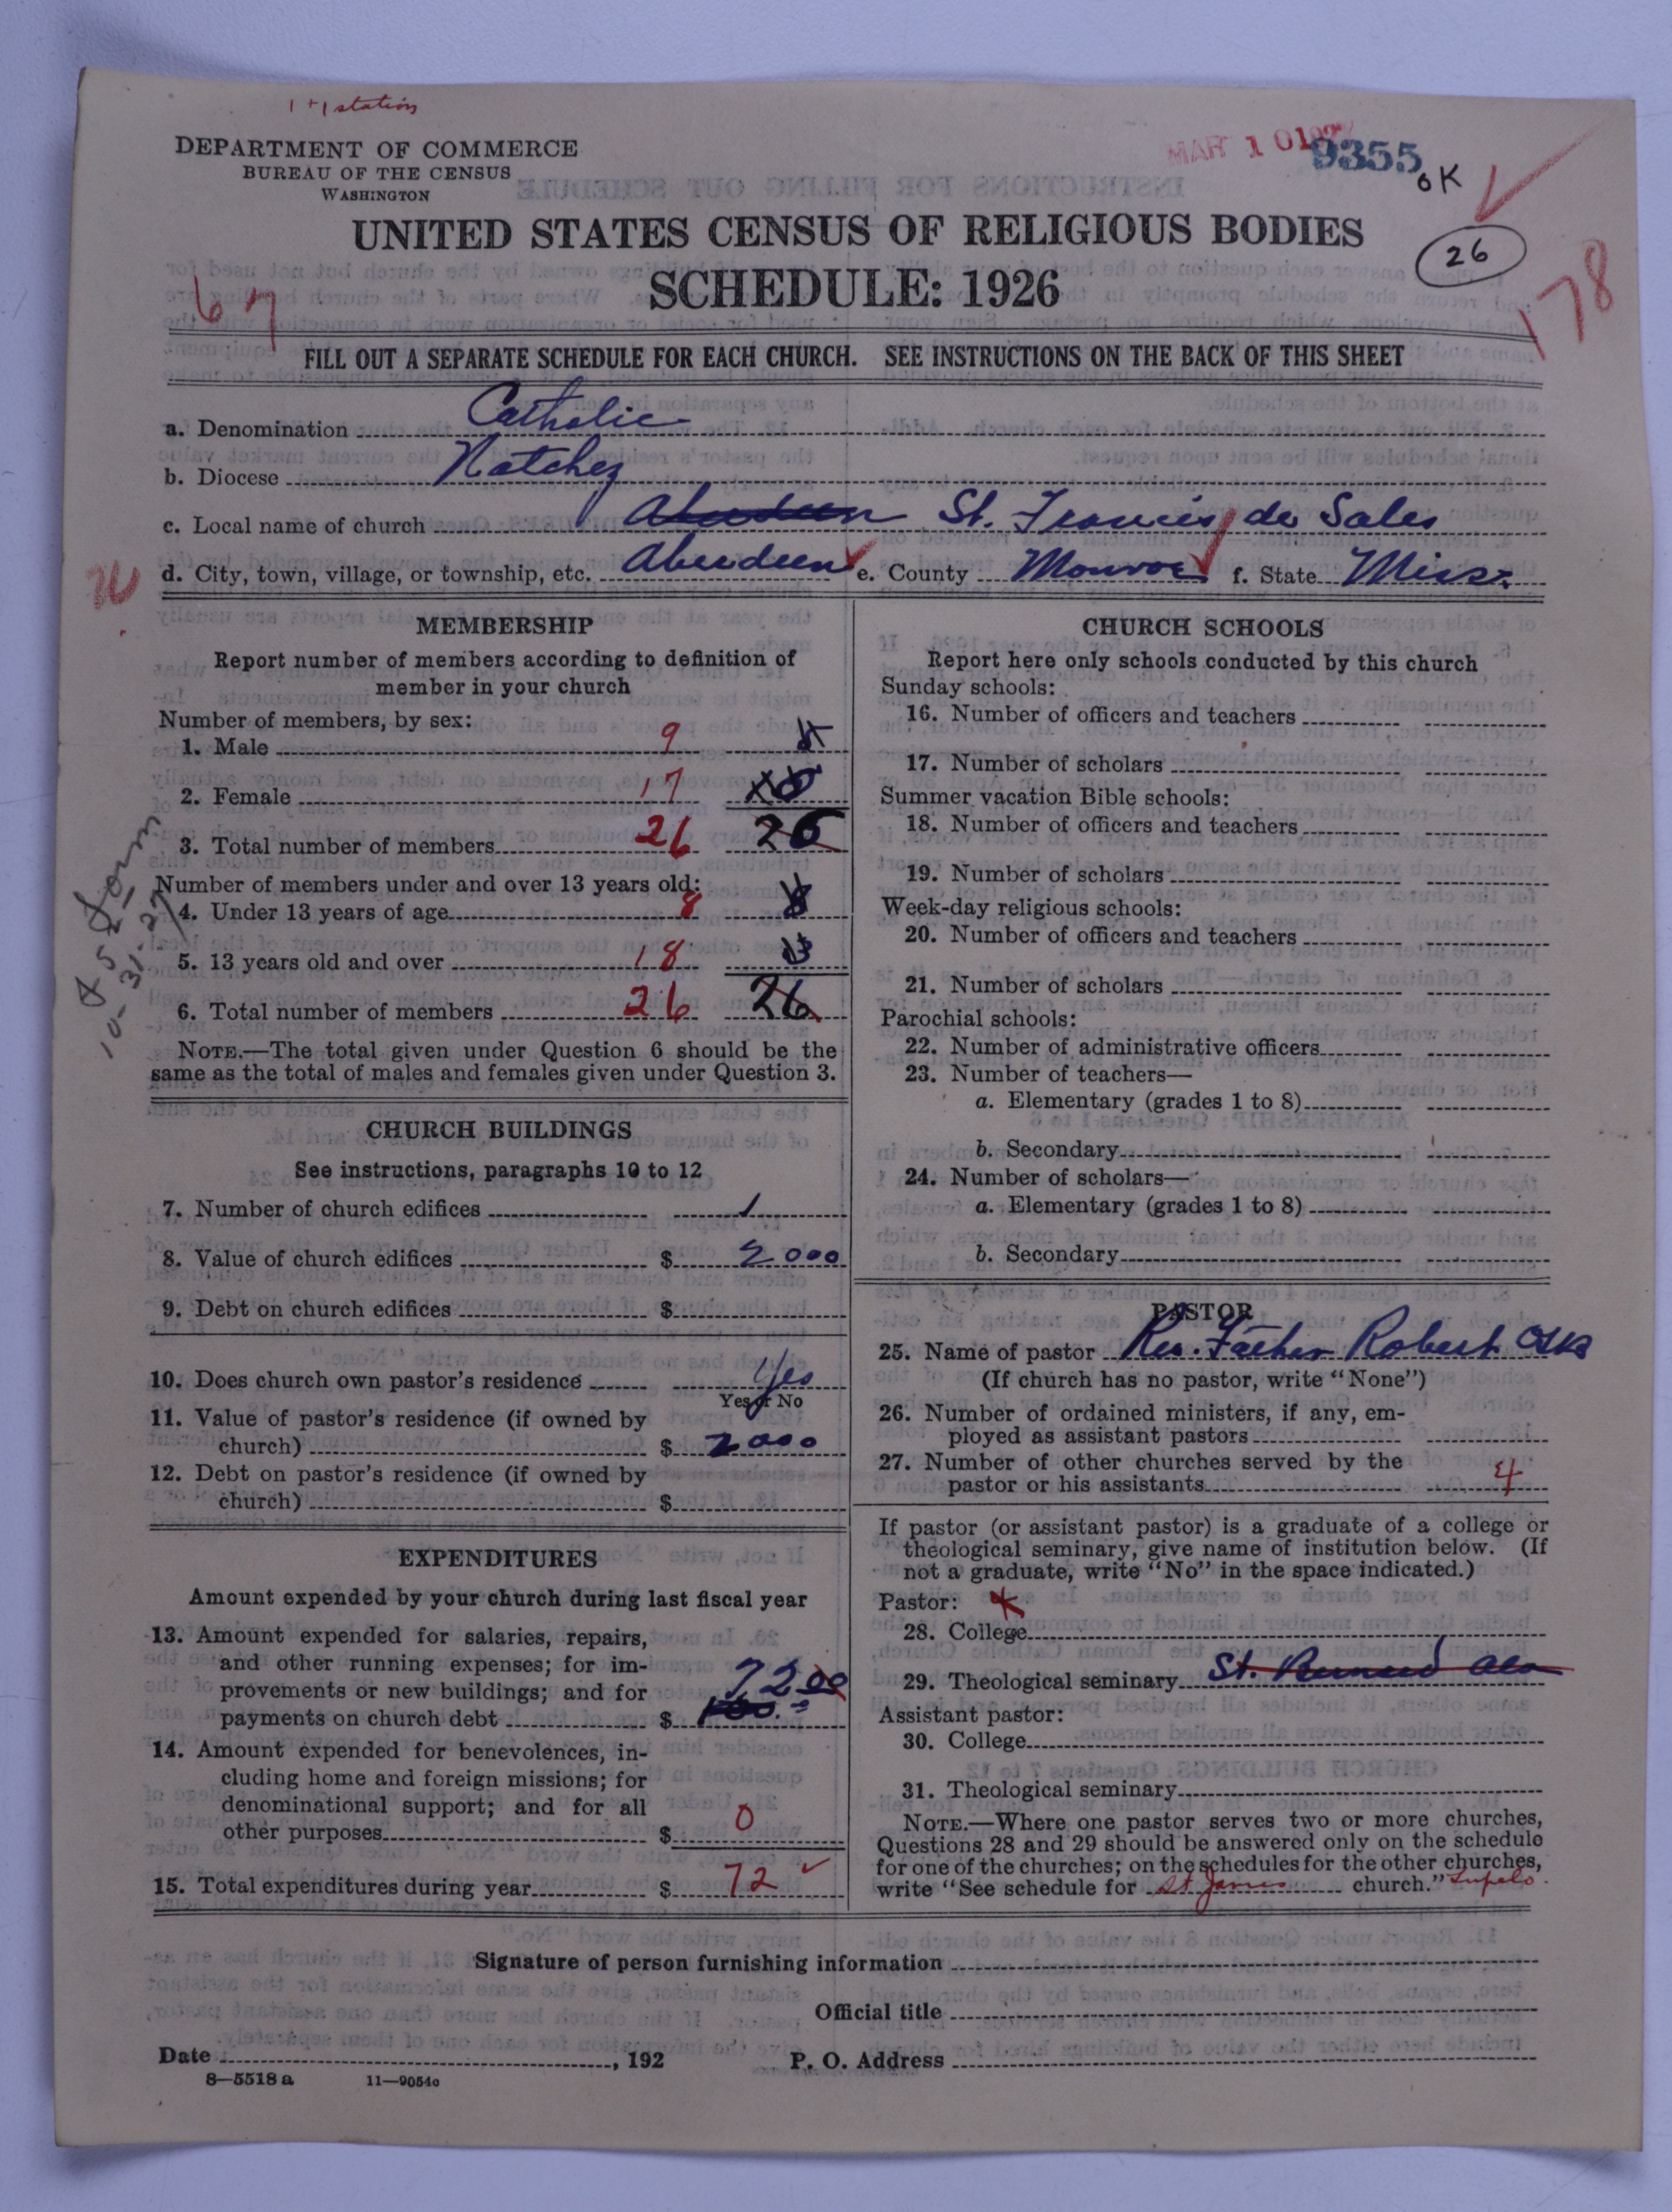 1+1 station
DEPARTMENT OF COMMERCE
BUREAU OF THE CENSUS
WASHINGTON
MAR 10 1927
9355
OK
UNITED STATES CENSUS OF RELIGIOUS BODIES
SCHEDULE: 1926
26
67
178
FILL OUT A SEPARATE SCHEDULE FOR EACH CHURCH. SEE INSTRUCTIONS ON THE BACK OF THIS SHEET
a. Denomination Catholic
b. Diocese Natchez
c. Local name of church Aberdeen St. Francis de Sales
d. City, town, village, or township, etc. Aberdeen e. County Monroe f. State Miss.
MEMBERSHIP
Report number of members according to definition of
member in your church
Number of members, by sex:
1. Male 9
2. Female 17
3. Total number of members 26 26
Number of members under and over 13 years old:
4. Under 13 years of age 8 8
5. 13 years old and over 18
6. Total number of members 26 26
NOTE.—The total given under Question 6 should be the
same as the total of males and females given under Question 3.
10-31-27
CHURCH BUILDINGS
See instructions, paragraphs 10 to 12
7. Number of church edifices 1
8. Value of church edifices $ 2000
9. Debt on church edifices $
10. Does church own pastor's residence Yes
Yes or No
11. Value of pastor's residence (if owned by
church) $ 2000
12. Debt on pastor's residence (if owned by
church) $
EXPENDITURES
Amount expended by your church during last fiscal year
13. Amount expended for salaries, repairs,
and other running expenses; for im-
provements or new buildings; and for
payments on church debt $ 72 00
14. Amount expended for benevolences, in-
cluding home and foreign missions; for
denominational support; and for all
other purposes $ 0
15. Total expenditures during year $ 72
CHURCH SCHOOLS
Report here only schools conducted by this church
Sunday schools:
16. Number of officers and teachers
17. Number of scholars
Summer vacation Bible schools:
18. Number of officers and teachers
19. Number of scholars
Week-day religious schools:
20. Number of officers and teachers
21. Number of scholars
Parochial schools:
22. Number of administrative officers
23. Number of teachers—
a. Elementary (grades 1 to 8)
b. Secondary
24. Number of scholars—
a. Elementary (grades 1 to 8)
b. Secondary
PASTOR
25. Name of pastor Rev. Father Robert
(If church has no pastor, write "None")
26. Number of ordained ministers, if any, em-
ployed as assistant pastors
27. Number of other churches served by the
pastor or his assistants 4
If pastor (or assistant pastor) is a graduate of a college or
theological seminary, give name of institution below. (If
not a graduate, write "No" in the space indicated.)
Pastor:
28. College
29. Theological seminary St. Bernard Ala
Assistant pastor:
30. College
31. Theological seminary
NOTE.—Where one pastor serves two or more churches,
Questions 28 and 29 should be answered only on the schedule
for one of the churches; on the schedules for the other churches,
write "See schedule for St James church." Tupelo
Signature of person furnishing information
Official title
Date , 192
P. O. Address
8—5518 a 11—9054c